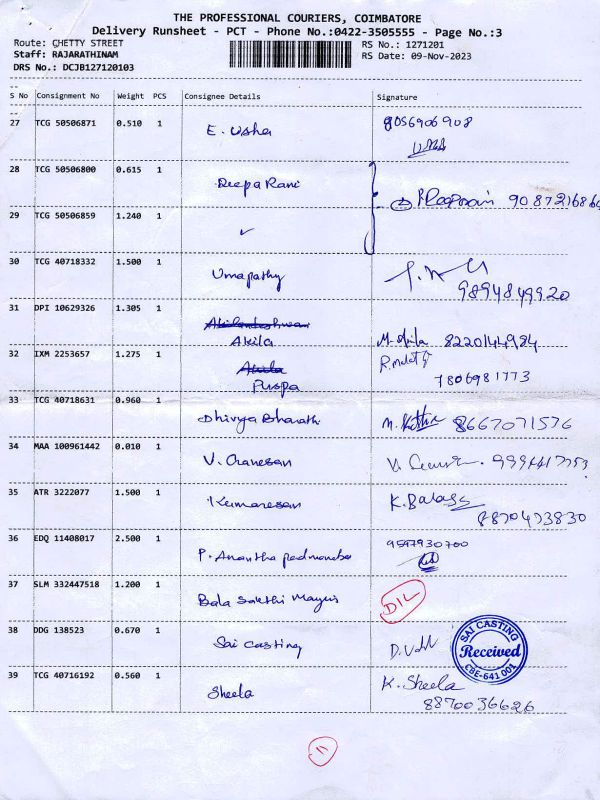 THE PROFESSIONAL COURIERS, COIMBATORE
Delivery Runsheet - PCT - Phone No.:0422-3505555 - Page No.:3
Route: CHETTY STREET RS No.: 1271201
Staff: RAJARATHINAM RS Date: 09-Nov-2023
DRS No.: DCJB127120103
S No Consignment No Weight PCS Consignee Details Signature
27 TCG 50506871 0.510 1 E. Usha 8056906908
Usha
28 TCG 50506800 0.615 1 Deepa Rani
9087216866
29 TCG 50506859 1.240 1 ✓
30 TCG 40718332 1.500 1 Umapathy
9894849920
31 DPI 10629326 1.305 1 Akilandeshwari
Akila M. Akila 8220144984
32 IXM 2253657 1.275 1 Akila
Puspa 7806981773
33 TCG 40718631 0.960 1 Dhivya Bharathi 8667071576
34 MAA 100961442 0.010 1 V. Ganesan V.
35 ATR 3222077 1.500 1 Kumaresan K. Balass
8870473830
36 EDQ 11408017 2.500 1 P. Anantha Padmanaba 9597930700
37 SLM 332447518 1.200 1 Bala Sakthi Mayuris D/L
38 DDG 138523 0.670 1 Sai Casting
SAI CASTING
Received
CBE-641 001
39 TCG 40716192 0.560 1 Sheela K. Sheela
8870036626
11